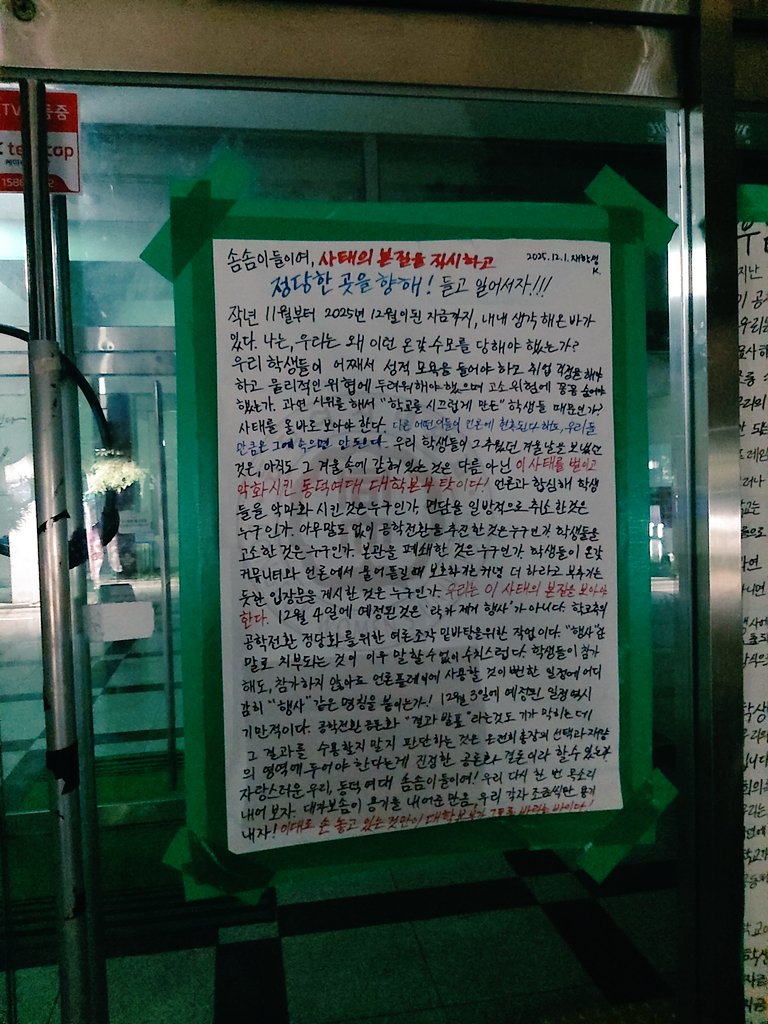 솜솜이들이여, 사태의 본질을 직시하고
2025.12.1. 재학생 K.
정당한 곳을 향해! 들고 일어서자!!!
작년 11월부터 2025년 12월이 된 지금까지, 내내 생각해온 바가
있다. 나는, 우리는 왜 이런 온갖 수모를 당해야 했는가?
우리 학생들이 어째서 성적 모욕을 들어야 하고 취업 걱정을 해야
하고 물리적인 위협에 두려워해야 했으며 고소 위협에 꽁꽁 숨어야
했는가. 과연 시위를 해서 "학교를 시끄럽게 만든" 학생들 때문인가?
사태를 올바로 보아야 한다. 다른 어떤 이들이 언론에 현혹된다 해도, 우리들
만큼은 그에 속으면 안 된다. 우리 학생들이 그 추웠던 겨울날을 보냈던
것은, 아직도 그 겨울 속에 갇혀 있는 것은 다름 아닌 이 사태를 벌이고
악화시킨 동덕여대 대학본부 탓이다! 언론과 합심해 학생
들을 악마화 시킨 것은 누구인가. 면담을 일방적으로 취소한 것은
누구인가. 아무말도 없이 공학전환을 추진한 것은 누구인가. 학생들을
고소한 것은 누구인가. 본관을 폐쇄한 것은 누구인가. 학생들이 온갖
커뮤니티와 언론에서 물어뜯길 때 보호하기는커녕 더 하라고 부추기는
듯한 입장문을 게시한 것은 누구인가. 우리는 이 사태의 본질을 보아야
한다. 12월 4일에 예정된 것은 '락카 제거 행사'가 아니다. 학교측의
공학전환 정당화를 위한 여론조작 밑바탕을 위한 작업이다. "행사"란
말로 치부되는 것이 이루 말할 수 없이 수치스럽다. 학생들이 참가
해도, 참가하지 않아도 언론플레이에 사용할 것이 뻔한 일정에 어디
감히 "행사" 같은 명칭을 붙이는가! 12월 3일에 예정된 일정 역시
기만적이다. 공학전환 공론화 "결과 발표"라는 것도 기가 막히는데
그 결과를 수용할지 말지 판단하는 것은 온전히 총장의 선택과 재량
의 영역에 두어야 한다는게 진정한 공론화 결론이라 할 수 있는가.
자랑스러운 우리, 동덕여대 솜솜이들이여! 우리 다시 한 번 목소리
내어 보자. 대자보솜이 용기를 내어준 만큼, 우리 각자 조금씩만 용기
내자! 이대로 손 놓고 있는 것만이 대학본부가 그토록 바라는 바이다!